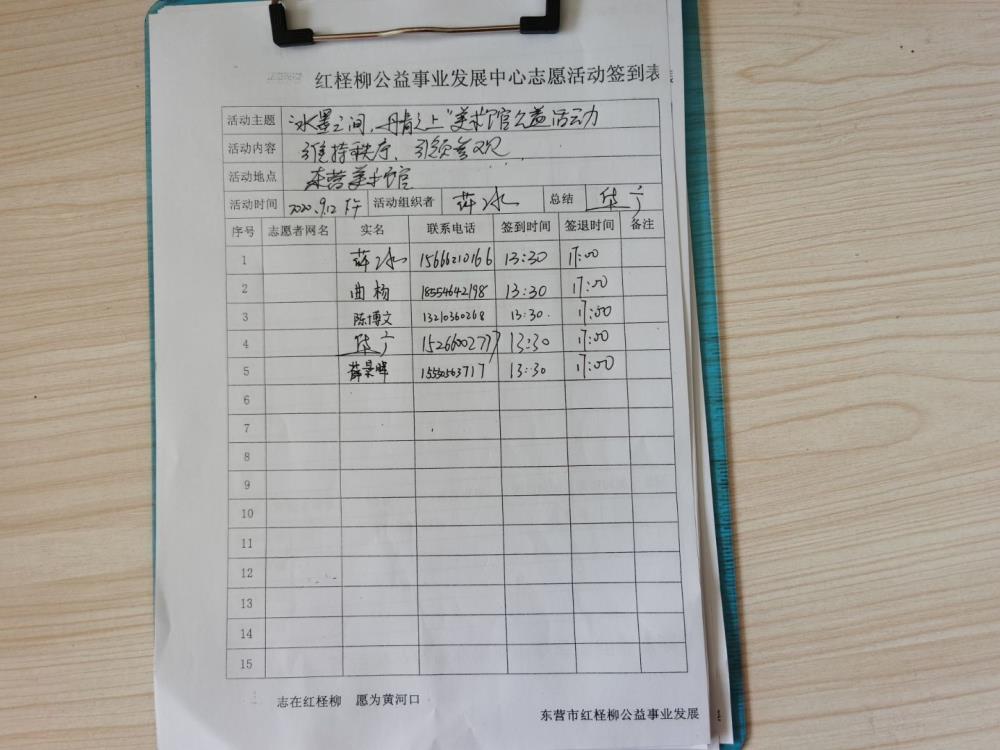 红柽柳公益事业发展中心志愿活动签到表
活动主题 水墨之间,丹青之上"美术馆公益活动
活动内容 维持秩序、引领参观
活动地点 东营美术馆
活动时间 2020.9.12 下午 活动组织者 薛冰 总结 华广
序号 志愿者网名 实名 联系电话 签到时间 签退时间 备注
1 薛冰 15666210166 13:30 17:00
2 曲杨 18554642198 13:30 17:00
3 陈博文 13210360268 13:30. 17:00
4 华广 15266002777 13:30 17:00
5 薛景晖 15550563717 13:30 17:00
6
7
8
9
10
11
12
13
14
15
志在红柽柳 愿为黄河口
东营市红柽柳公益事业发展